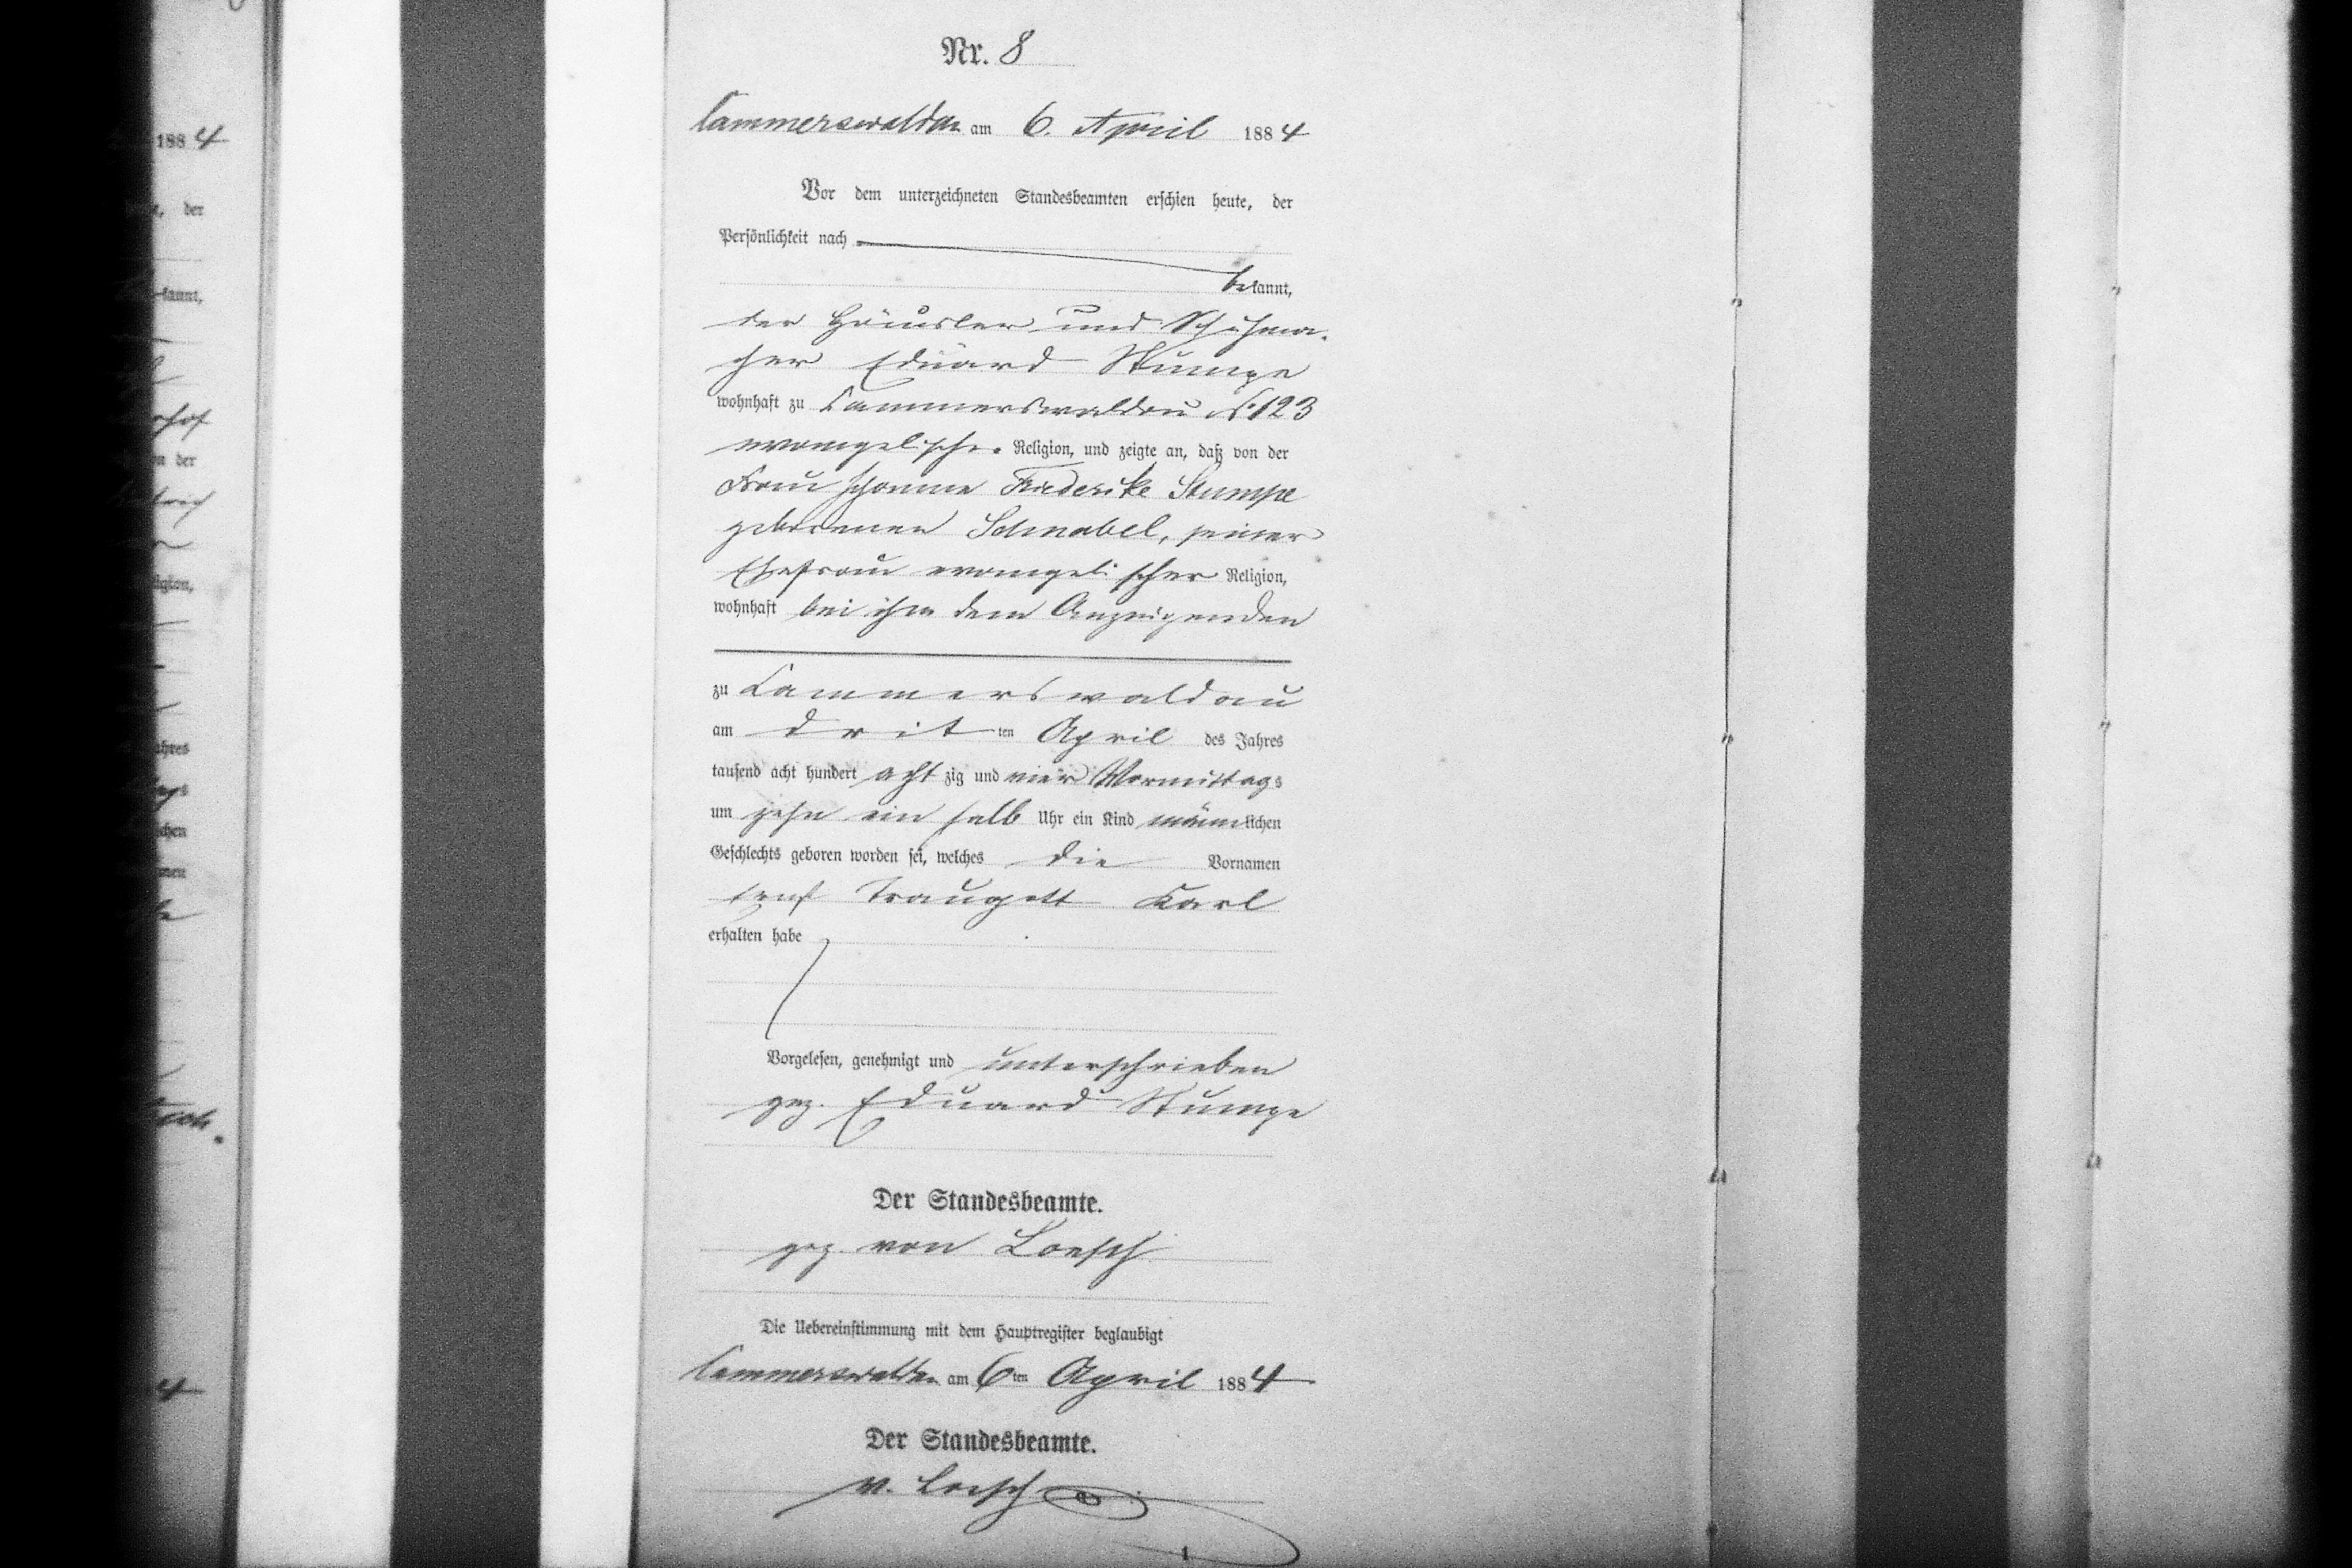 188 4
der
kannt,
n der
ligion,
ahres
chen
men
4
Nr. 8
Cammerswaldau am 6. April 1884
Vor dem unterzeichneten Standesbeamten erschien heute, der
Persönlichkeit nach
bekannt,
der Häusler und Schuhma-
cher Eduard Stumpe
wohnhaft zu Cammerswaldau N. 123
evangelischer Religion, und zeigte an, daß von der
Frau Johanne Friederike Stumpe
geborenen Schnabel, seiner
Ehefrau evangelischer Religion,
wohnhaft bei ihm dem Anzeigenden
zu Cammerswaldau
am dritten April des Jahres
tausend acht hundert achtzig und vier Vormittags
um zehn ein halb Uhr ein Kind männlichen
Geschlechts geboren worden sei, welches die Vornamen
Traugott Karl
erhalten habe
Vorgelesen, genehmigt und unterschrieben
gez. Eduard Stumpe
Der Standesbeamte.
gez. von Loesch
Die Uebereinstimmung mit dem Hauptregister beglaubigt
Cammerswaldau am 6ten April 1884
Der Standesbeamte.
v. Loesch